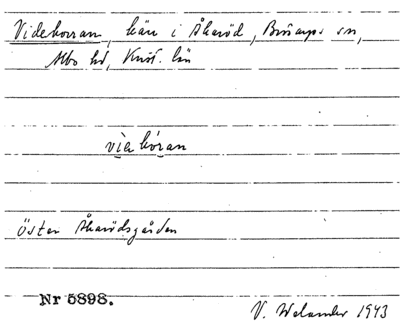 Videkorran, kärr i Åkaröd, Brösarps sn,
Albo hd, Krist. län
vìɑkǫ́ran
Öster Åkarödsgården
Nr 5898.
V. Welander 1943